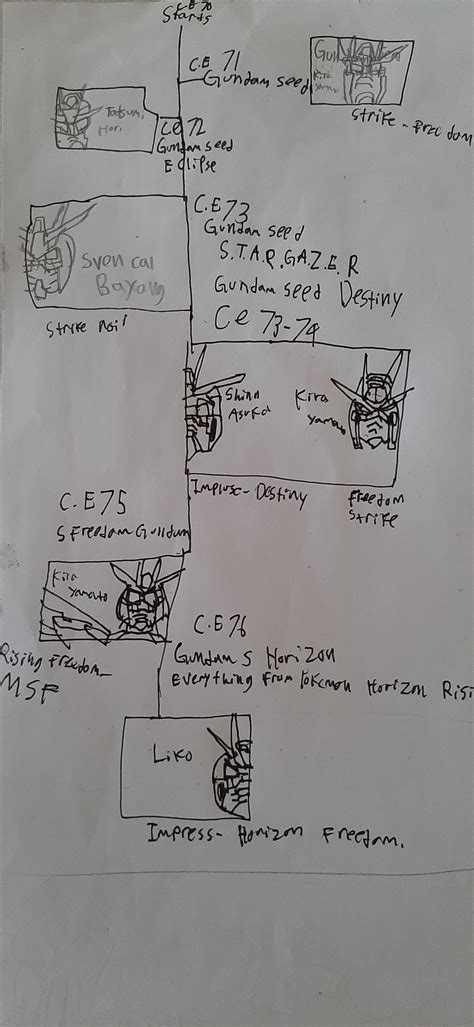 C.E 70
Starts
C.E 71
Gundam seed
Gundam Seed
Kira
Yamato
Strike-Freedom
CE 72
Gundam seed
Eclipse
C.E 73
Gundam seed
S.T.A.R.G.A.Z.E.R
Gundam seed Destiny
Sven cal
Bayang
Strike noir
Ce 73-74
Shinn
Asuka
Kira
Yamato
Impulse-Destiny
Freedom
Strike
C.E 75
S Freedom Gundum
Kira
Yamato
Rising Freedom-
MSF
C.E 76
Gundam S Horizon
Everything From Pokemon Horizon Risi
Liko
Impress-Horizon Freedom.